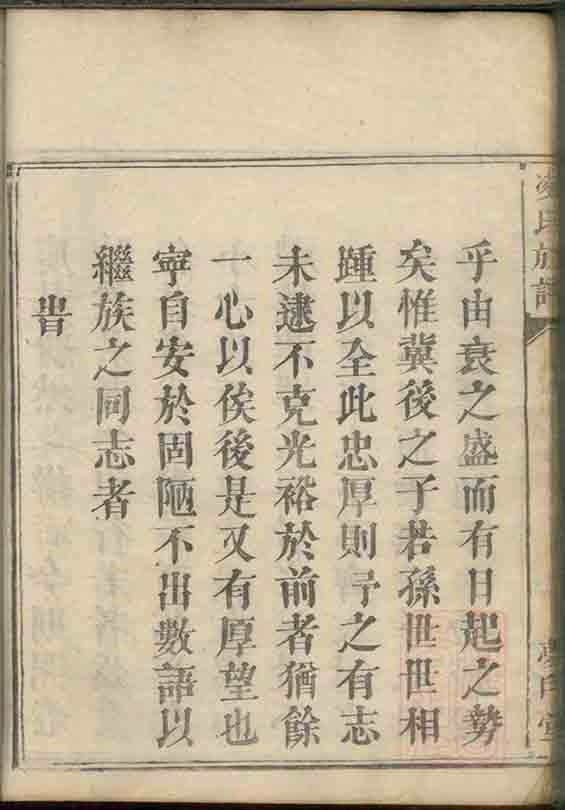 乎由衰之盛而有日起之勢
矣惟冀後之子若孫世世相
踵以全此忠厚則予之有志
未逮不克光裕於前者猶餘
一心以俟後是又有厚望也
寧自安於固陋不出數語以
繼族之同志者
旹